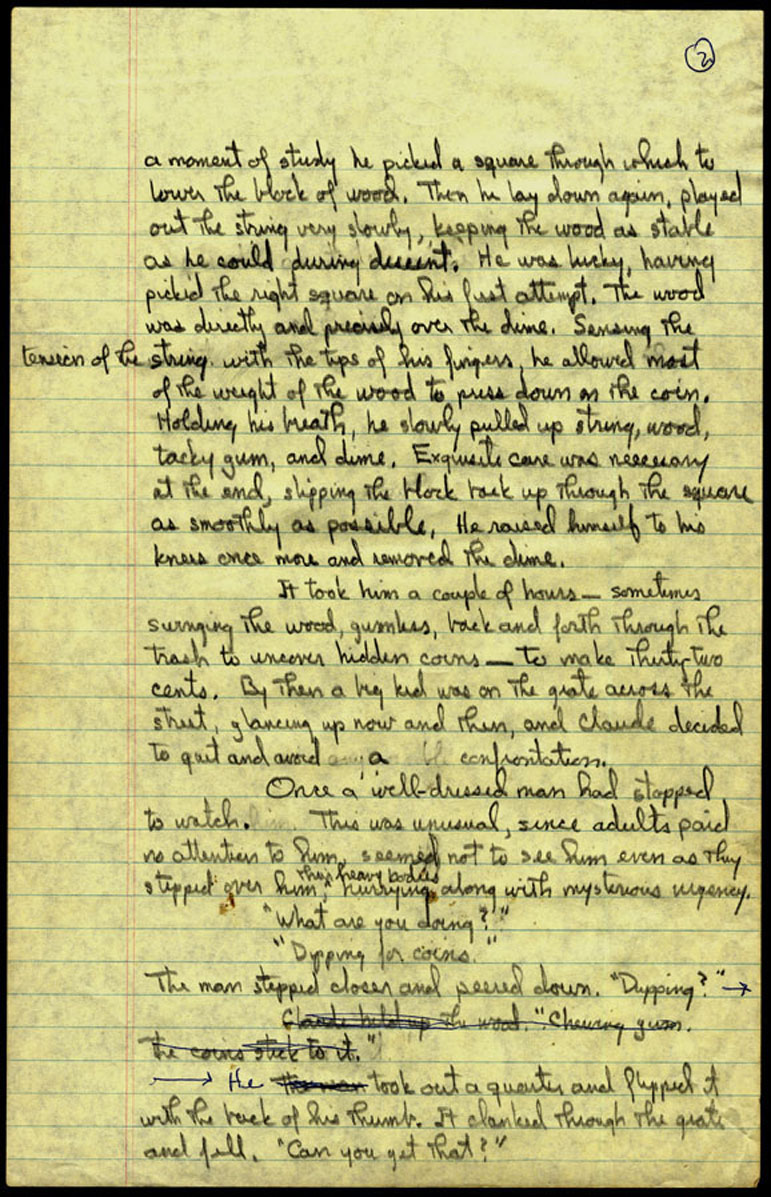 2
a moment of study he picked a square through which to
lower the block of wood. Then he lay down again, played
out the string very slowly, keeping the wood as stable
as he could during descent. He was lucky, having
picked the right square on his first attempt. The wood
was directly and precisely over the dime. Sensing the
tension of the string with the tips of his fingers, he allowed most
of the weight of the wood to press down on the coin.
Holding his breath, he slowly pulled up string, wood,
tacky gum, and dime. Exquisite care was necessary
at the end, slipping the block back up through the square
as smoothly as possible. He raised himself to his
knees once more and removed the dime.
It took him a couple of hours — sometimes
swinging the wood, gumless, back and forth through the
trash to uncover hidden coins — to make thirty-two
cents. By then a big kid was on the grate across the
street, glancing up now and then, and Claude decided
to quit and avoid a confrontation.
Once a well-dressed man had stopped
to watch. This was unusual, since adults paid
no attention to him, seemed not to see him even as they
their heavy bodies
stepped over him, hurrying along with mysterious urgency.
"What are you doing?"
"Dypping for coins."
The man stepped closer and peered down. "Dypping?" →
Claude held up the wood. "Chewing gum.
The coins stick to it."
→ He the man took out a quarter and flipped it
with the back of his thumb. It clanked through the grate
and fell. "Can you get that?"